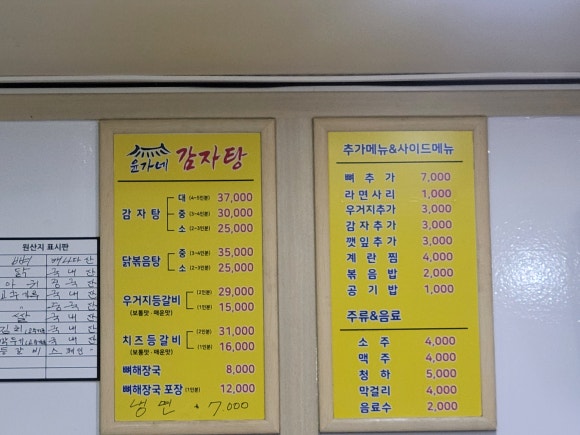 윤가네 감자탕
감자탕
대 (4~5인분) 37,000
중 (3~4인분) 30,000
소 (2~3인분) 25,000
닭볶음탕
중 (3~4인분) 35,000
소 (2~3인분) 25,000
우거지등갈비
(보통맛·매운맛)
(2인분) 29,000
(1인분) 15,000
치즈등갈비
(보통맛·매운맛)
(2인분) 31,000
(1인분) 16,000
뼈해장국 8,000
뼈해장국 포장 (1인분) 12,000
냉면 7,000
추가메뉴&사이드메뉴
뼈추가 7,000
라면사리 1,000
우거지추가 3,000
감자추가 3,000
깻잎추가 3,000
계란찜 4,000
볶음밥 2,000
공기밥 1,000
주류&음료
소주 4,000
맥주 4,000
청하 5,000
막걸리 4,000
음료수 2,000
원산지 표시판
닭 국내산
쌀 국내산
등갈비 스페인